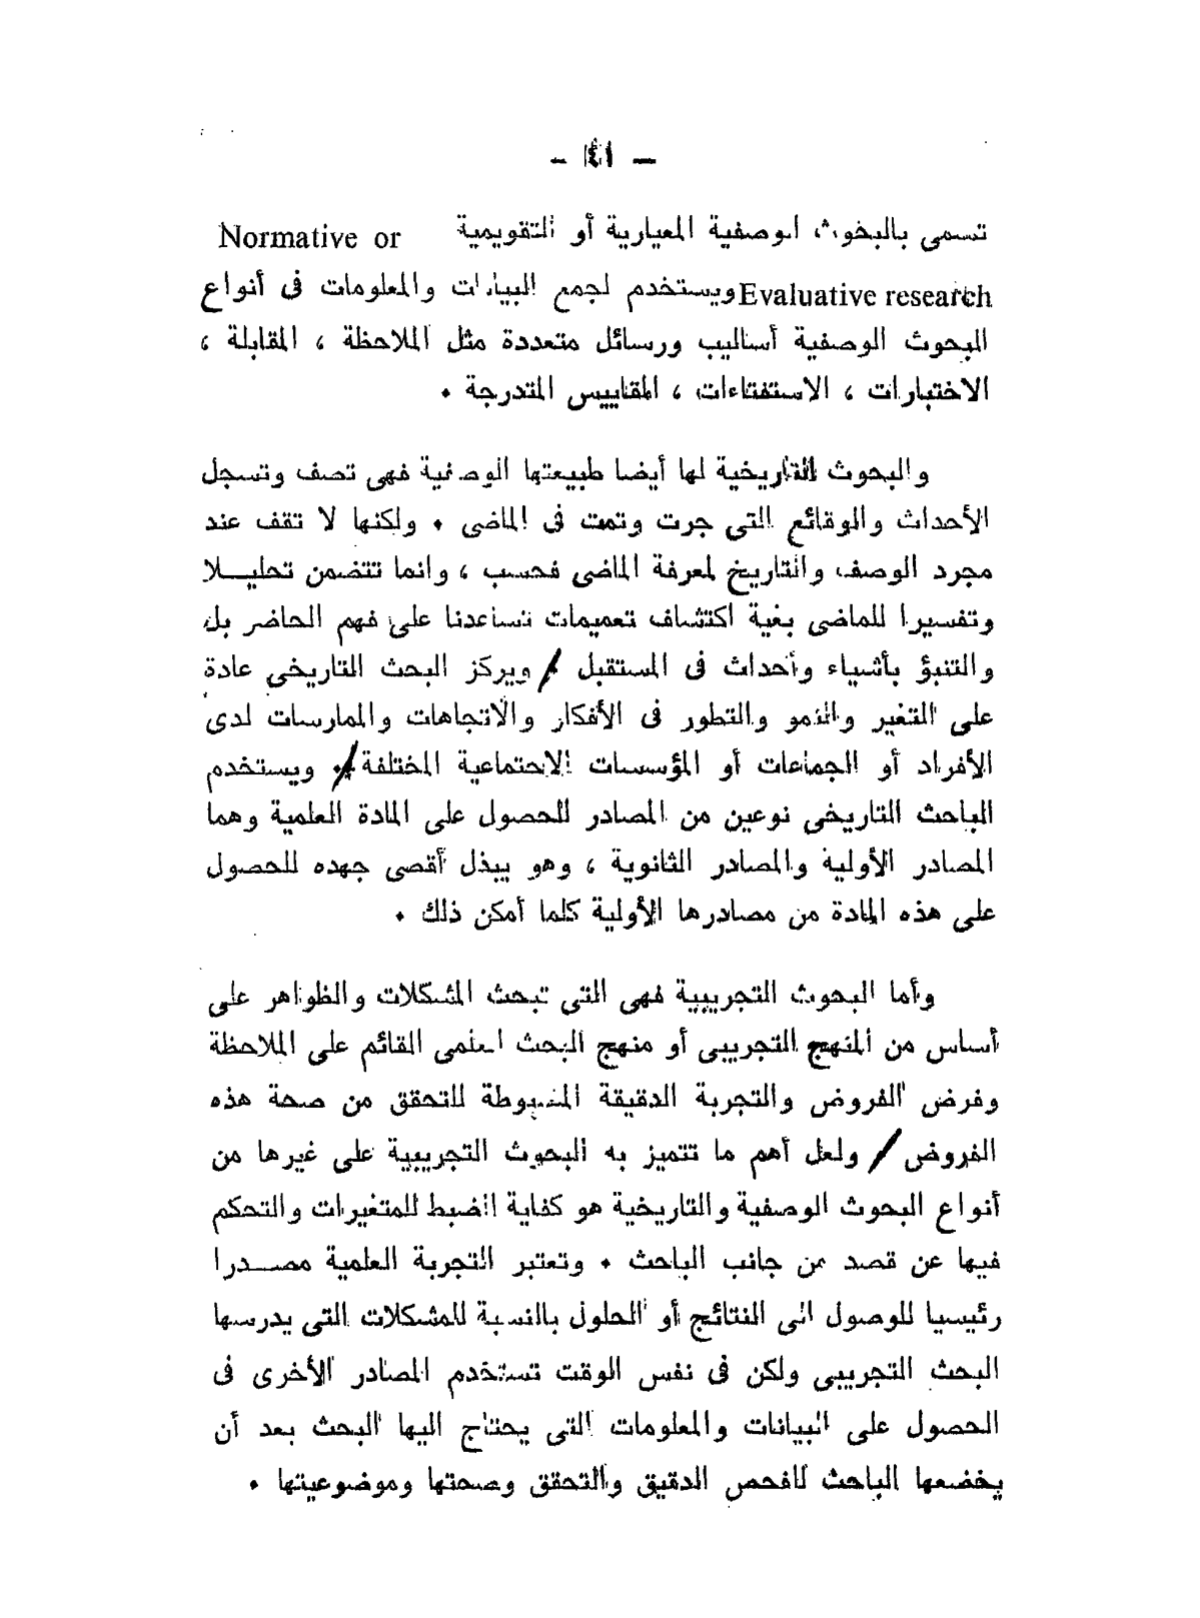 — ٤١ —
تسمى بالبحوث الوصفية المعيارية أو التقويمية Normative or
Evaluative research ويستخدم لجمع البيانات والمعلومات فى أنواع
البحوث الوصفية أساليب ورسائل متعددة مثل الملاحظة ، المقابلة ،
الاختبارات ، الاستفتاءات ، المقاييس المتدرجة .
والبحوث التاريخية لها أيضا طبيعتها الوصفية فهى تصف وتسجل
الأحداث والوقائع التى جرت وتمت فى الماضى . ولكنها لا تقف عند
مجرد الوصف والتاريخ لمعرفة الماضى فحسب ، وانما تتضمن تحليلا
وتفسيرا للماضى بغية اكتشاف تعميمات تساعدنا على فهم الحاضر بل
والتنبؤ بأشياء وأحداث فى المستقبل . ويركز البحث التاريخى عادة
على التغير والنمو والتطور فى الأفكار والاتجاهات والممارسات لدى
الأفراد أو الجماعات أو المؤسسات الاجتماعية المختلفة . ويستخدم
الباحث التاريخى نوعين من المصادر للحصول على المادة العلمية وهما
المصادر الأولية والمصادر الثانوية ، وهو يبذل أقصى جهده للحصول
على هذه المادة من مصادرها الأولية كلما أمكن ذلك .
وأما البحوث التجريبية فهى التى تبحث المشكلات والظواهر على
أساس من المنهج التجريبى أو منهج البحث العلمى القائم على الملاحظة
وفرض الفروض والتجربة الدقيقة المضبوطة للتحقق من صحة هذه
الفروض / ولعل أهم ما تتميز به البحوث التجريبية على غيرها من
أنواع البحوث الوصفية والتاريخية هو كفاية الضبط للمتغيرات والتحكم
فيها عن قصد من جانب الباحث . وتعتبر التجربة العلمية مصدرا
رئيسيا للوصول الى النتائج أو الحلول بالنسبة للمشكلات التى يدرسها
البحث التجريبى ولكن فى نفس الوقت تستخدم المصادر الأخرى فى
الحصول على البيانات والمعلومات التى يحتاج اليها البحث بعد أن
يخضعها الباحث للفحص الدقيق والتحقق وصحتها وموضوعيتها .